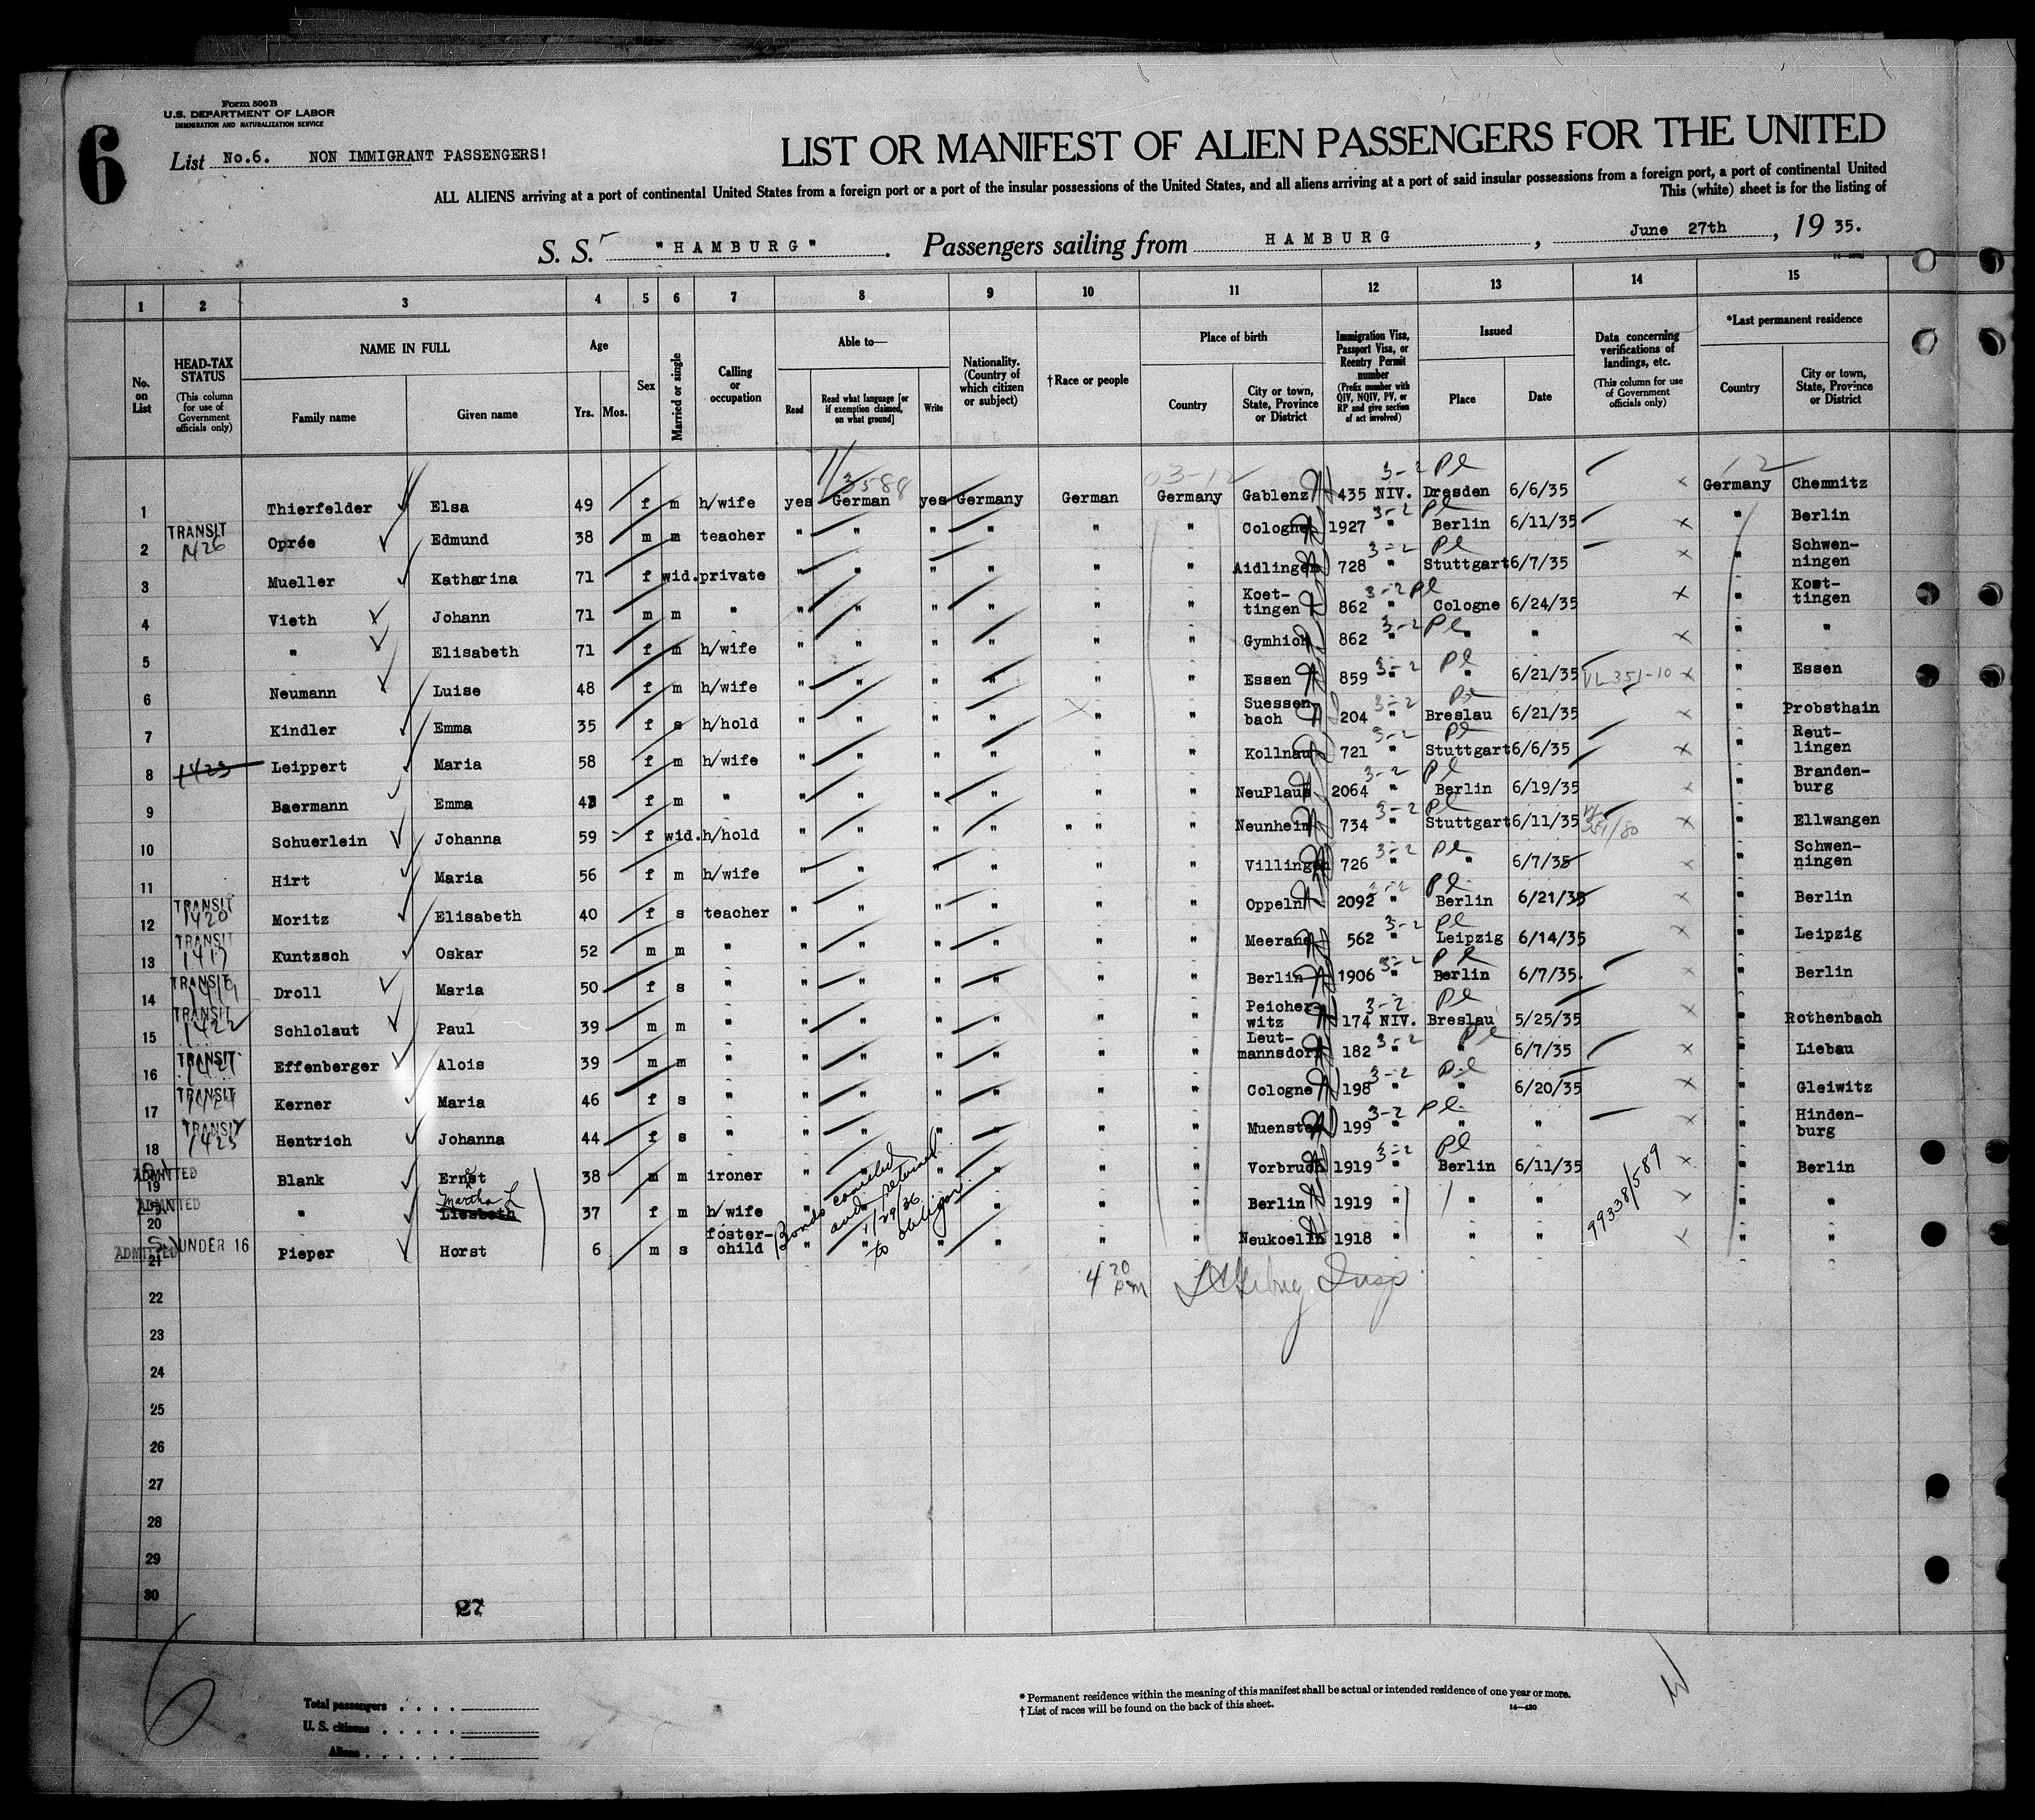 Form 500 B
U.S. DEPARTMENT OF LABOR
IMMIGRATION AND NATURALIZATION SERVICE
6
List No.6. NON IMMIGRANT PASSENGERS!
LIST OR MANIFEST OF ALIEN PASSENGERS FOR THE UNITED
ALL ALIENS arriving at a port of continental United States from a foreign port or a port of the insular possessions of the United States, and all aliens arriving at a port of said insular possessions from a foreign port, a port of continental United
This (white) sheet is for the listing of
S. S. "HAMBURG". Passengers sailing from HAMBURG, June 27th, 19 35.
1 2 3 4 5 6 7 8 9 10 11 12 13 14 15
No. on List
HEAD-TAX STATUS (This column for use of Government officials only)
NAME IN FULL
Family name
Given name
Age
Yrs. Mos.
Sex
Married or single
Calling or occupation
Able to—
Read
Read what language [or if exemption claimed, on what ground]
Write
Nationality. (Country of which citizen or subject)
†Race or people
Place of birth
Country
City or town, State, Province or District
Immigration Visa, Passport Visa, or Reentry Permit number (Prefix number with QIV, NQIV, PV, or RP and give section of act involved)
Issued
Place
Date
Data concerning verifications of landings, etc. (This column for use of Government officials only)
*Last permanent residence
Country
City or town, State, Province or District
3588 03-12 12
1 Thierfelder Elsa 49 f m h/wife yes German yes Germany German Germany Gablenz 435 NIV. 3-2 Pl Dresden 6/6/35 Germany Chemnitz
2 TRANSIT 1426 Oprée Edmund 38 m m teacher " " " " " " Cologne 1927 " 3-2 Pl Berlin 6/11/35 " Berlin
3 Mueller Katharina 71 f wid. private " " " " " " Aidlingen 728 " 3-2 Pl Stuttgart 6/7/35 " Schwen-ningen
4 Vieth Johann 71 m m " " " " " " " Koet-tingen 862 " 3-2 Pl Cologne 6/24/35 " Koet-tingen
5 " Elisabeth 71 f m h/wife " " " " " " Gymhich 862 3-2 Pl " " " "
6 Neumann Luise 48 f m h/wife " " " " " " Essen 859 " 3-2 Pl " 6/21/35 VL 351-10 " Essen
7 Kindler Emma 35 f s h/hold " " " " " " Suessen-bach 204 " 3-2 Pl Breslau 6/21/35 " Probsthain
8 1423 Leippert Maria 58 f m h/wife " " " " " " Kollnau 721 " 3-2 Pl Stuttgart 6/6/35 " Reut-lingen
9 Baermann Emma 43 f m " " " " " " " NeuPlaue 2064 " 3-2 Pl Berlin 6/19/35 " Branden-burg
10 Schuerlein Johanna 59 f wid. h/hold " " " " " " " Neunheim 734 " 3-2 Pl Stuttgart 6/11/35 351/80 " Ellwangen
11 Hirt Maria 56 f m h/wife " " " " " " Villingen 726 " 3-2 Pl " 6/7/35 " Schwen-ningen
12 TRANSIT 1420 Moritz Elisabeth 40 f s teacher " " " " " " Oppeln 2092 " 3-2 Pl Berlin 6/21/35 " Berlin
13 TRANSIT 1417 Kuntzsch Oskar 52 m m " " " " " " " Meerane 562 " 3-2 Pl Leipzig 6/14/35 " Leipzig
14 TRANSIT 1419 Droll Maria 50 f s " " " " " " " Berlin 1906 " 3-2 Pl Berlin 6/7/35. " Berlin
15 TRANSIT 1422 Schlolaut Paul 39 m m " " " " " " " Peicher witz 174 NIV. 3-2 Pl Breslau 5/25/35 " Rothenbach
16 TRANSIT 1421 Effenberger Alois 39 m m " " " " " " " Leut-mannsdorf 182 " 3-2 Pl " 6/7/35 " Liebau
17 TRANSIT Kerner Maria 46 f s " " " " " " " Cologne 198 " 3-2 Pl " 6/20/35 " Gleiwitz
18 TRANSIT 1423 Hentrich Johanna 44 f s " " " " " " " Muenster 199 " 3-2 Pl " " " Hinden-burg
19 ADMITTED Blank Ernst 38 m m ironer " " " " " " Vorbruch 1919 " 3-2 Pl Berlin 6/11/35 " Berlin
20 ADMITTED " Martha L Liesbeth 37 f m h/wife " " " " " Berlin 1919 " " " " "
21 ADMITTED UNDER 16 Pieper Horst 6 m s foster-child " " " " " " Neukoelln 1918 " " " " "
Bonds canceled and returned 1/29/36 to obligor.
99338/589
4 20 PM Insp
22
23
24
25
26
27
28
29
30
27
6
Total passengers
U. S. citizens
Aliens
* Permanent residence within the meaning of this manifest shall be actual or intended residence of one year or more.
† List of races will be found on the back of this sheet.
14—430